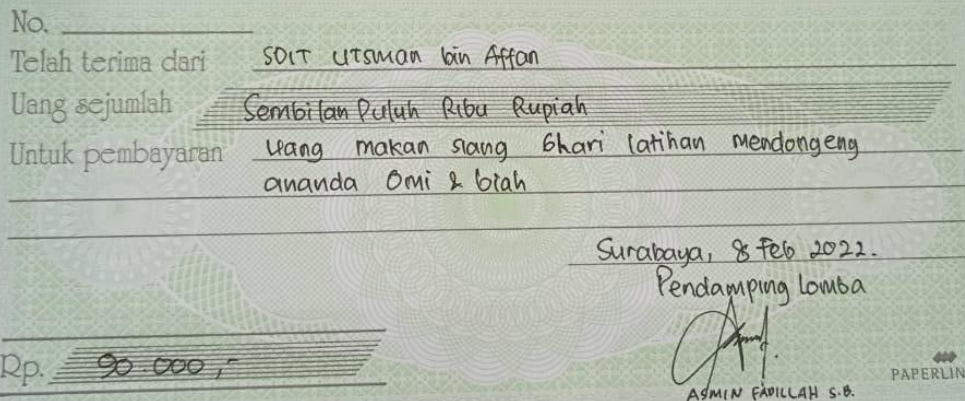 No.
Telah terima dari SDIT UTSMAN bin Affan
Uang sejumlah Sembilan Puluh Ribu Rupiah
Untuk pembayaran uang makan siang 6hari latihan mendongeng
ananda Omi & biah
Surabaya, 8 Feb 2022.
Pendamping Lomba
Rp. 90.000,-
ASMIN FADILLAH S.B.
PAPERLIN